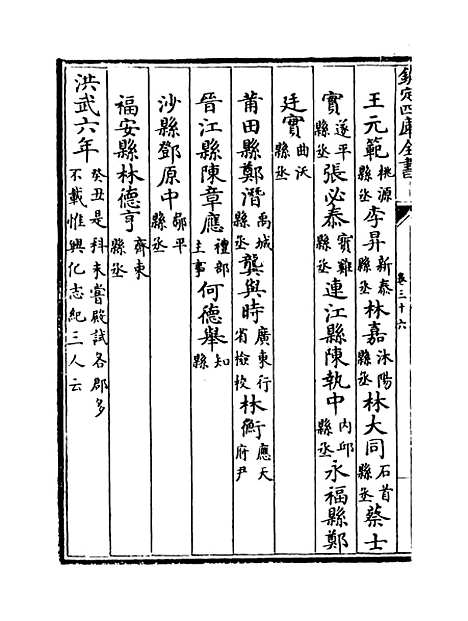 欽定四庫全書
卷三十六
王元範桃源縣丞李昇新泰縣丞林嘉沭陽縣丞林大同石首縣丞蔡士
實遂平縣丞張必泰寳雞縣丞連江縣陳執中内邱縣丞永福縣鄭
廷實曲沃縣丞
莆田縣鄭潛禹城縣丞龔與時廣東行省檢校林衡應天府尹
晉江縣陳章應禮部主事何德舉知縣
沙縣鄧原中鄒平縣丞
福安縣林德亨齊東縣丞
洪武六年癸丑是科未嘗殿試各郡多不載惟興化志紀三人云